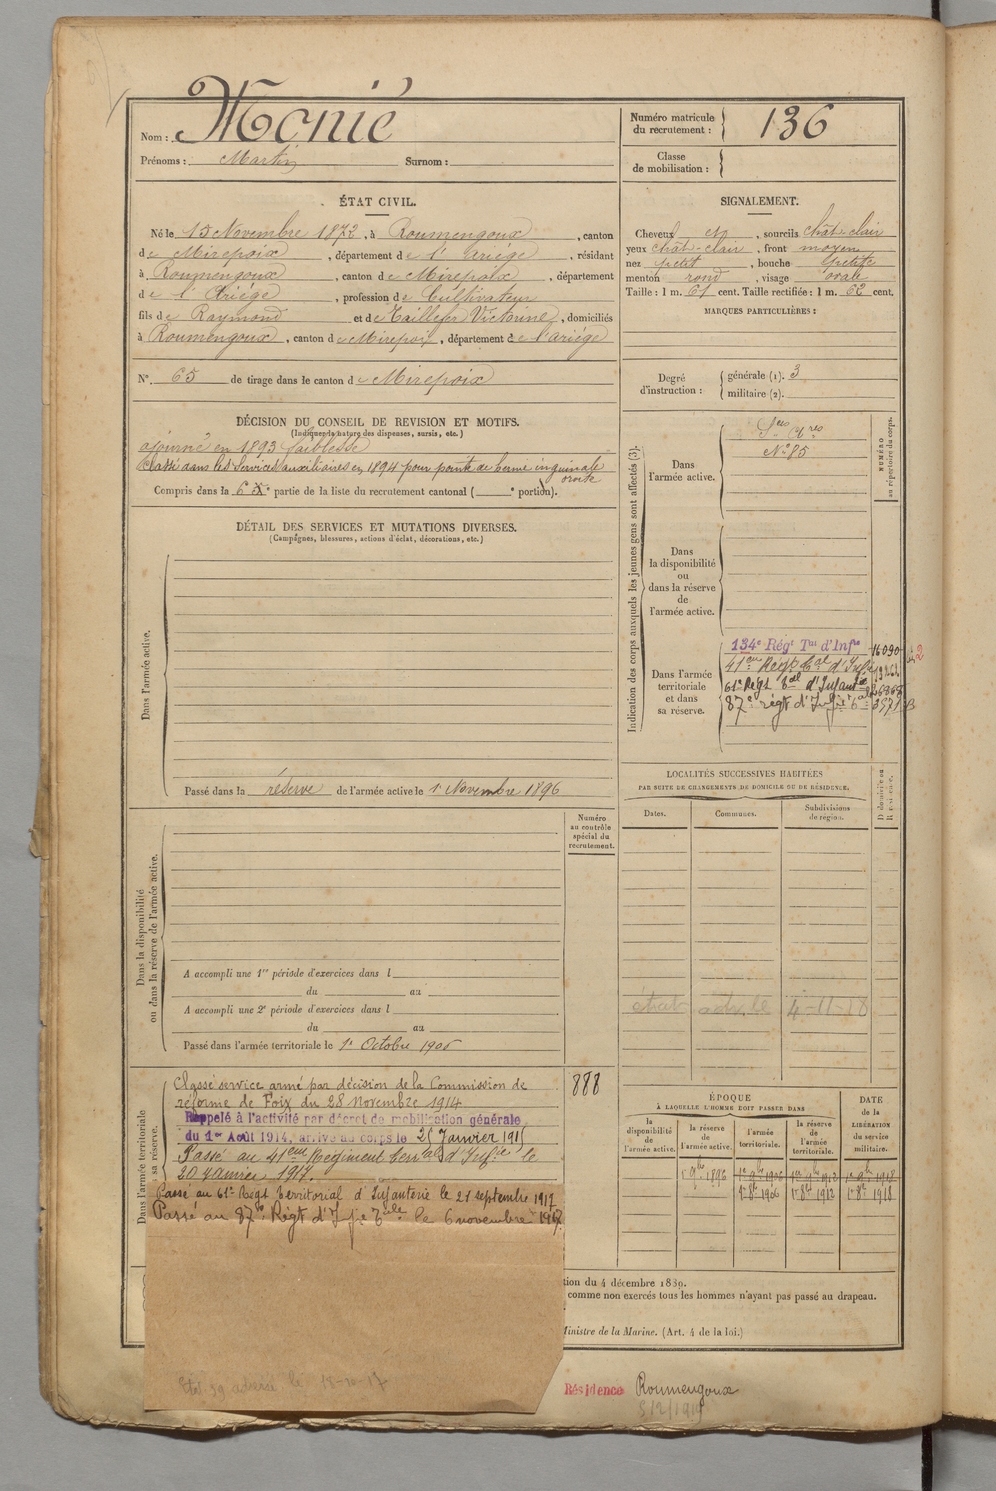 Nom : Monié
Prénoms : Martin Surnom :
Numéro matricule du recrutement : 136
Classe de mobilisation :
ÉTAT CIVIL.
Né le 15 Novembre 1872, à Roumengoux, canton
de Mirepoix, département de l'Ariège, résidant
à Roumengoux, canton de Mirepoix, département
de l'Ariège, profession de Cultivateur
fils de Raymond et de Taillefer Victorine, domiciliés
à Roumengoux, canton de Mirepoix, département de l'ariége
N° 65 de tirage dans le canton de Mirepoix
SIGNALEMENT.
Cheveux et, sourcils chat-clair
yeux chat-clair, front moyen
nez petit, bouche petite
menton rond, visage ovale
Taille : 1 m. 61 cent. Taille rectifiée : 1 m. 62 cent.
MARQUES PARTICULIÈRES :
Degré d'instruction : générale (1). 3
militaire (2).
DÉCISION DU CONSEIL DE REVISION ET MOTIFS.
(Indiquer la nature des dispenses, sursis, etc.)
ajourné en 1893 faiblesse
Classé dans les Services auxiliaires en 1894 pour pointe de hernie inguinale
droite
Compris dans la 6e partie de la liste du recrutement cantonal ( e portion).
DÉTAIL DES SERVICES ET MUTATIONS DIVERSES.
(Campagnes, blessures, actions d'éclat, décorations, etc.)
Dans l'armée active.
Passé dans la réserve de l'armée active le 1r Novembre 1896
Indication des corps auxquels les jeunes gens sont affectés (3).
NUMÉRO au répertoire du corps.
Dans l'armée active.
N° 85
Dans la disponibilité ou dans la réserve de l'armée active.
Dans l'armée territoriale et dans sa réserve.
134e Régt Tal d'Infie 16090
41eme Régt tal d'Infie
61e Régt tal d'Infanterie
87e régt d'Infie tale
LOCALITÉS SUCCESSIVES HABITÉES
PAR SUITE DE CHANGEMENTS DE DOMICILE OU DE RÉSIDENCE.
Dates. Communes. Subdivisions de région. D domicile ou R résidence.
Dans la disponibilité ou dans la réserve de l'armée active.
Numéro au contrôle spécial du recrutement.
A accompli une 1re période d'exercices dans l
du au
A accompli une 2e période d'exercices dans l
du au
Passé dans l'armée territoriale le 1r Octobre 1906
4-11-18
Dans l'armée territoriale et dans sa réserve.
888
Classé service armé par décision de la Commission de
réforme de Foix du 28 novembre 1914
Rappelé à l'activité par décret de mobilisation générale
du 1er Août 1914, arrivé au corps le 25 Janvier 1915
Passé au 41eme Régiment terrial d'Infie le
20 janvier 1917.
Passé au 61e Regt Territorial d'Infanterie le 21 septembre 1917
Passé au 87e Régt d'Infie Tale le 6 novembre 1917
ÉPOQUE
À LAQUELLE L'HOMME DOIT PASSER DANS
DATE de la LIBÉRATION du service militaire.
la disponibilité de l'armée active. la réserve de l'armée active. l'armée territoriale. la réserve de l'armée territoriale.
1r 9bre 1896 1r 9bre 1906 1er 9bre 1912 1r 9bre 1918
1r 8bre 1906 1r 8bre 1912 1r 8bre 1918
tion du 4 décembre 1889.
comme non exercés tous les hommes n'ayant pas passé au drapeau.
Ministre de la Marine. (Art. 4 de la loi.)
Etat 39 adressé le 18-10-17
Résidence Roumengoux